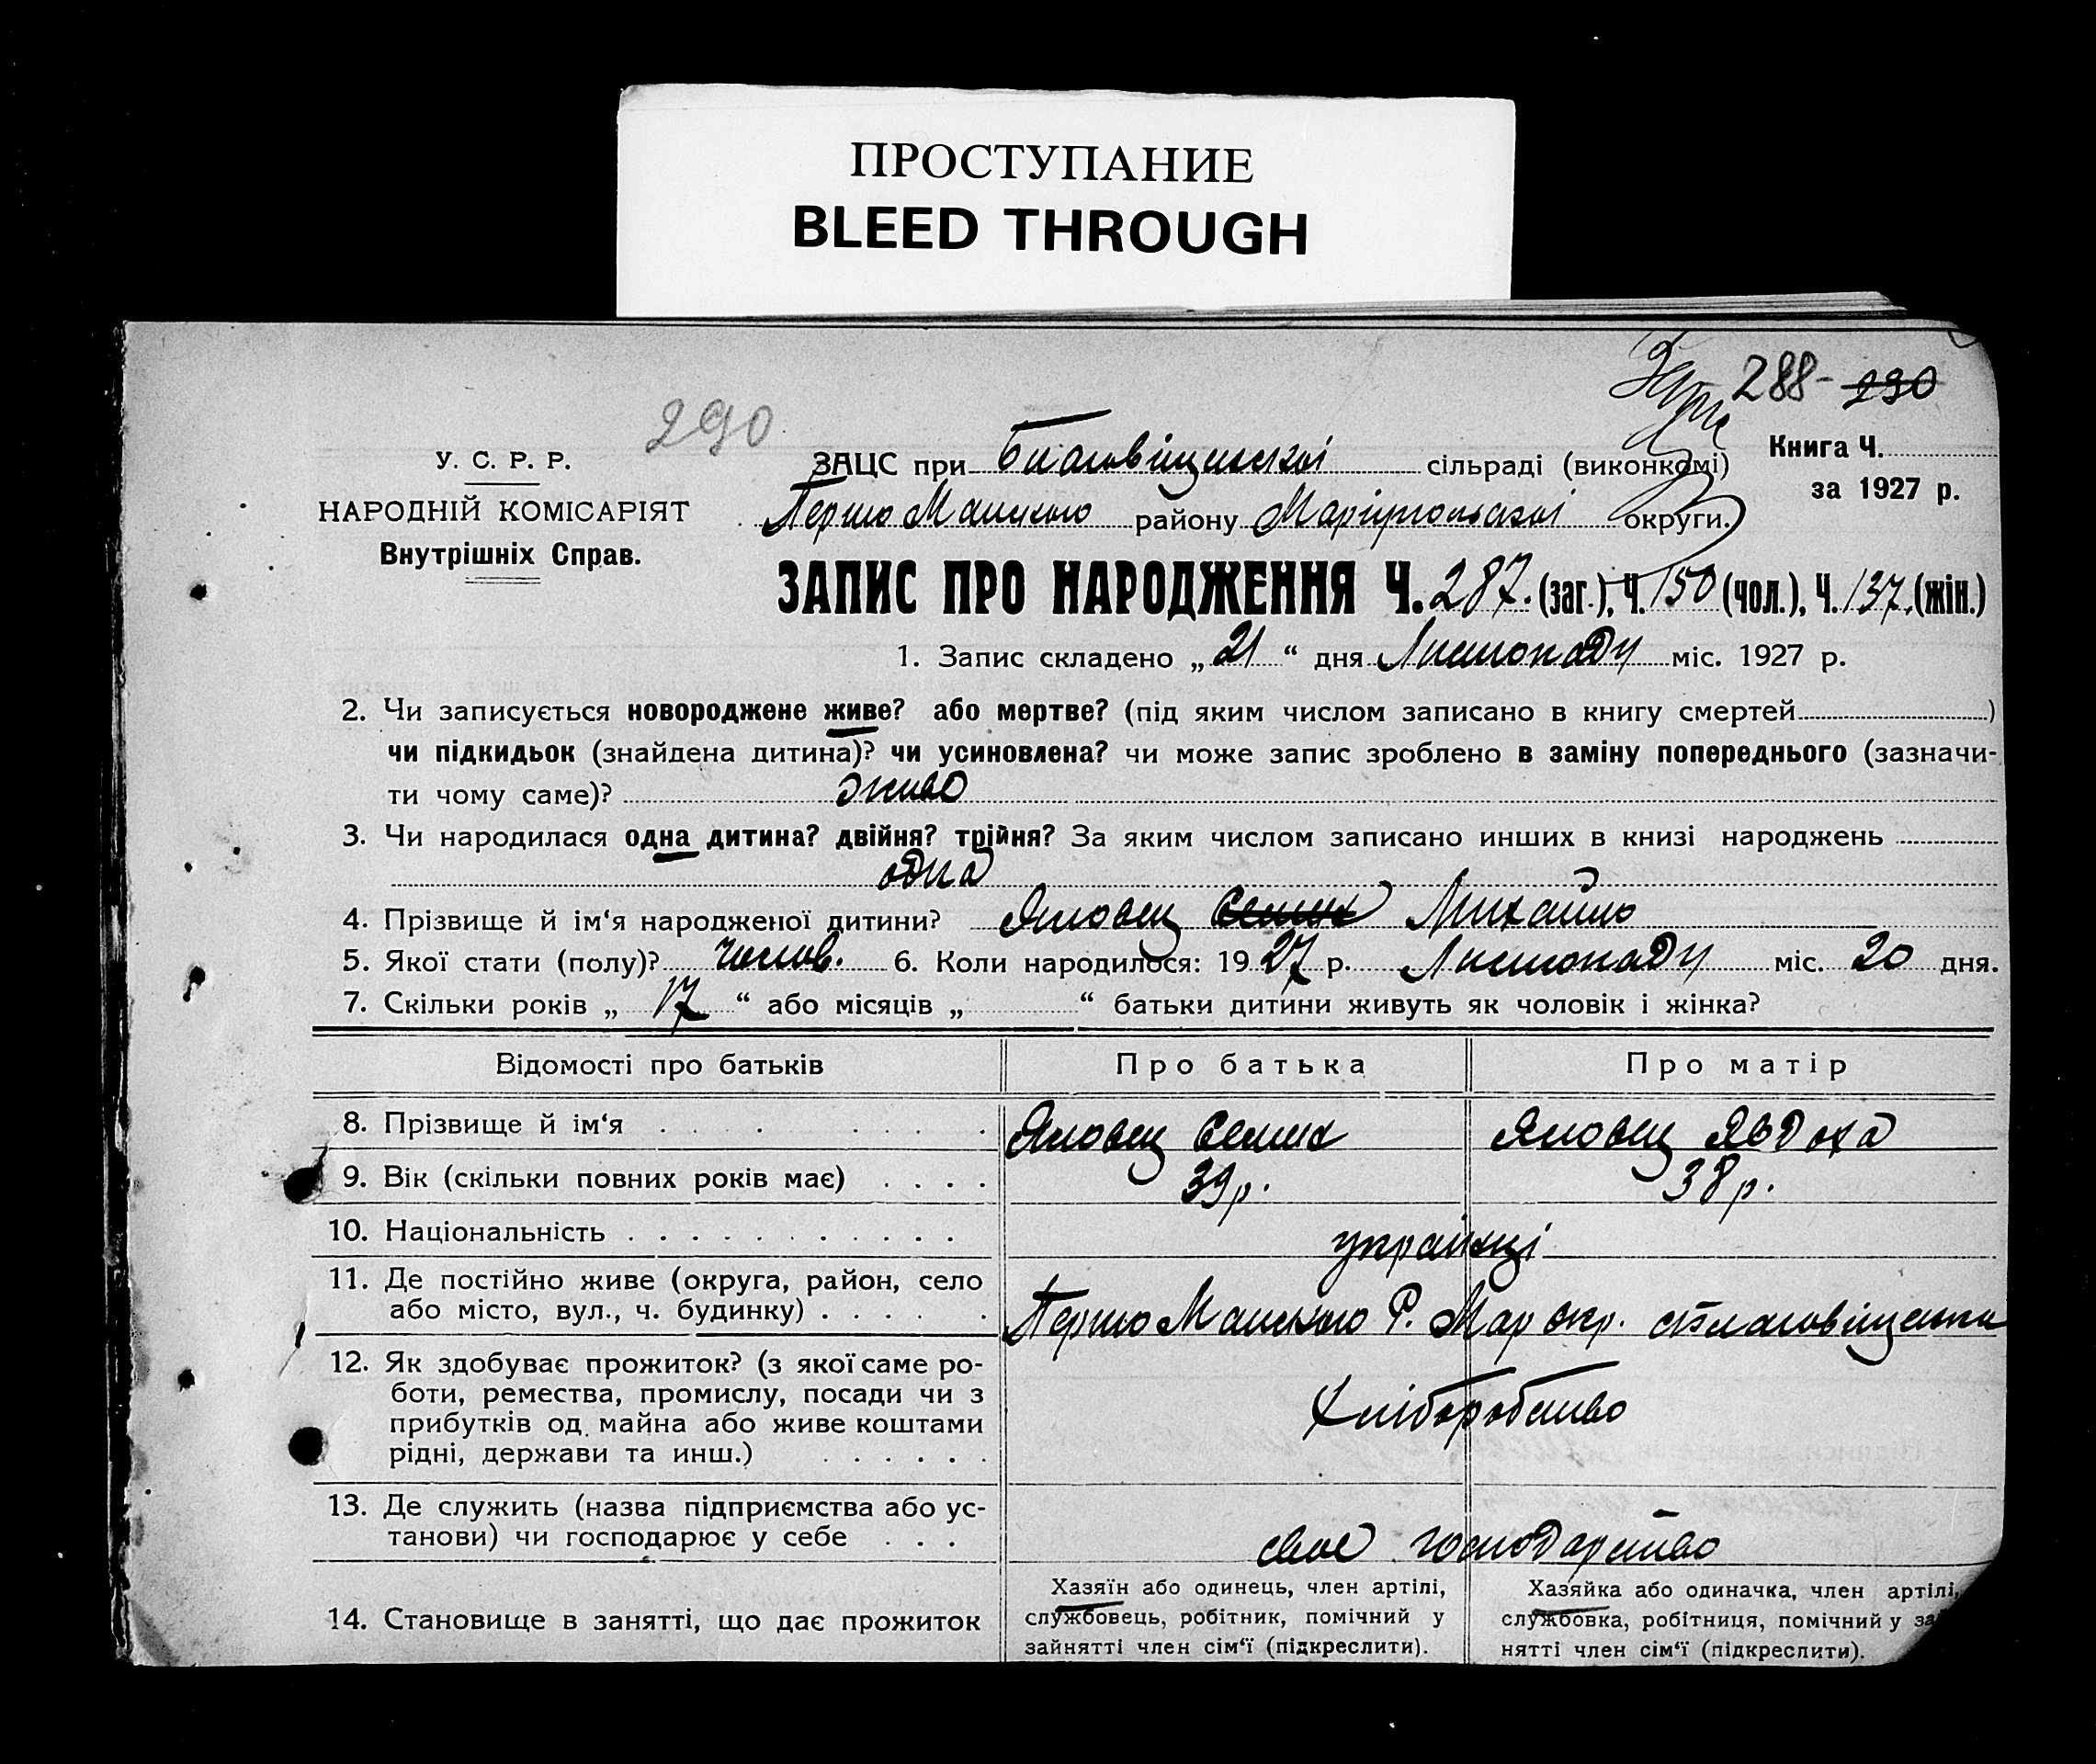 ПРОСТУПАНИЕ
BLEED THROUGH
288- 290
290
У. С. Р. Р.
НАРОДНІЙ КОМІСАРІЯТ
Внутрішніх Справ.
Книга Ч.
за 1927 р.
ЗАЦС при Благовіщенській сільраді (виконкомі)
Першо Манського району Маріупольської округи.
ЗАПИС ПРО НАРОДЖЕННЯ Ч. 287. (заг.), Ч. 150 (чол.), Ч. 137. (жін.)
1. Запис складено „ 21 “ дня Листопаду міс. 1927 р.
2. Чи записується новороджене живе? або мертве? (під яким числом записано в книгу смертей )
чи підкидьок (знайдена дитина)? чи усиновлена? чи може запис зроблено в заміну попереднього (зазначи-
ти чому саме)? живо
3. Чи народилася одна дитина? двійня? трійня? За яким числом записано инших в книзі народжень
одна
4. Прізвище й ім‘я народженої дитини? Яловец Семен Михайло
5. Якої стати (полу)? чолов. 6. Коли народилося: 19 27 р. Листопаду міс. 20 дня.
7. Скільки років „ 17 “ або місяців „ “ батьки дитини живуть як чоловік і жінка?
Відомості про батьків Про батька Про матір
8. Прізвище й ім‘я Яловец Семен Яловец Явдоха
9. Вік (скільки повних років має) 39 р. 38 р.
10. Національність українці
11. Де постійно живе (округа, район, село
або місто, вул., ч. будинку) Першо Манського Р. Мар окр. с Благовіщенка
12. Як здобуває прожиток? (з якої саме ро-
боти, ремества, промислу, посади чи з
прибутків од майна або живе коштами
рідні, держави та инш.)
Хліборобство
13. Де служить (назва підприємства або ус-
танови) чи господарює у себе своє господарство
14. Становище в занятті, що дає прожиток
Хазяїн або одинець, член артілі,
службовець, робітник, помічний у
зайнятті член сім‘ї (підкреслити).
Хазяйка або одиначка, член артілі,
службовка, робітниця, помічний у за
нятті член сім‘ї (підкреслити).